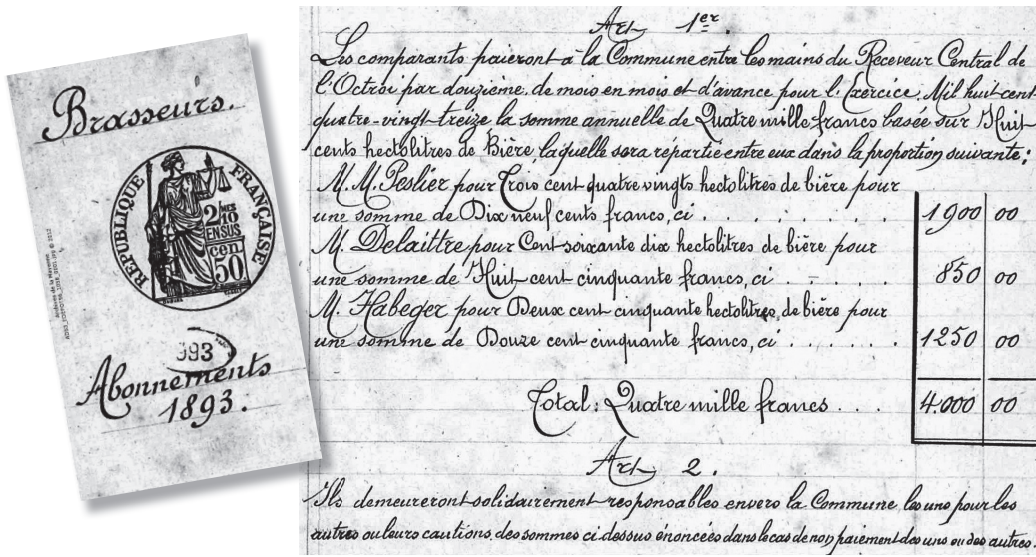 Brasseurs.
RÉPUBLIQUE FRANÇAISE
2/MES
10
EN SUS
cen
50
Archives de la Mayenne
993
Abonnements
1893.
Art 1er.
Les comparants paieront à la Commune entre les mains du Receveur Central de
l'Octroi par douzième, de mois en mois et d'avance pour l'Exercice Mil huit cent
quatre-vingt-treize la somme annuelle de Quatre mille francs basée sur Huit
cents hectolitres de Bière, laquelle sera répartie entre eux dans la proportion suivante :
M.M. Peslier pour Trois cent quatre vingts hectolitres de bière pour
une somme de Dix neuf cents francs, ci . . . . . . . 1900 00
M. Delaittre pour Cent soixante dix hectolitres de bière pour
une somme de Huit cent cinquante francs, ci . . . . . . 850 00
M. Habeger pour Deux cent cinquante hectolitres de bière pour
une somme de Douze cent cinquante francs, ci . . . . . . 1250 00
Total : Quatre mille francs . . . 4.000 00
Art 2.
Ils demeureront solidairement responsables envers la Commune, les uns pour les
autres ou leurs cautions, des sommes ci dessus énoncées dans le cas de non paiement des uns ou des autres.